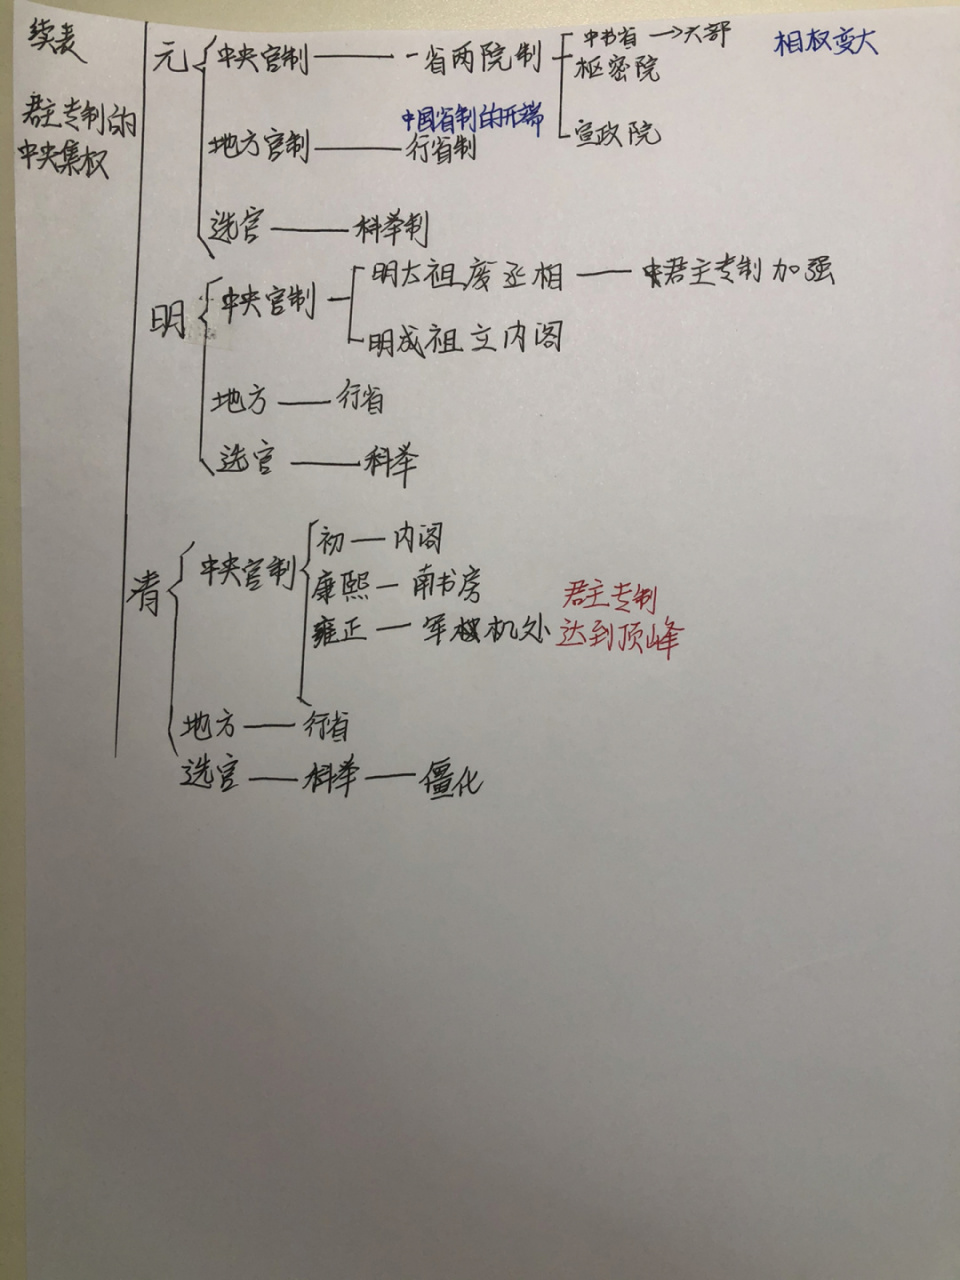 续表
君主专制的
中央集权
元 中央官制 一省两院制 中书省→六部 相权变大
枢密院
宣政院
中国省制的开端
地方官制 行省制
选官 科举制
明 中央官制 明太祖废丞相 君主专制加强
明成祖立内阁
地方 行省
选官 科举
清 中央官制 初 内阁
康熙 南书房
雍正 军机处
君主专制
达到顶峰
地方 行省
选官 科举 僵化